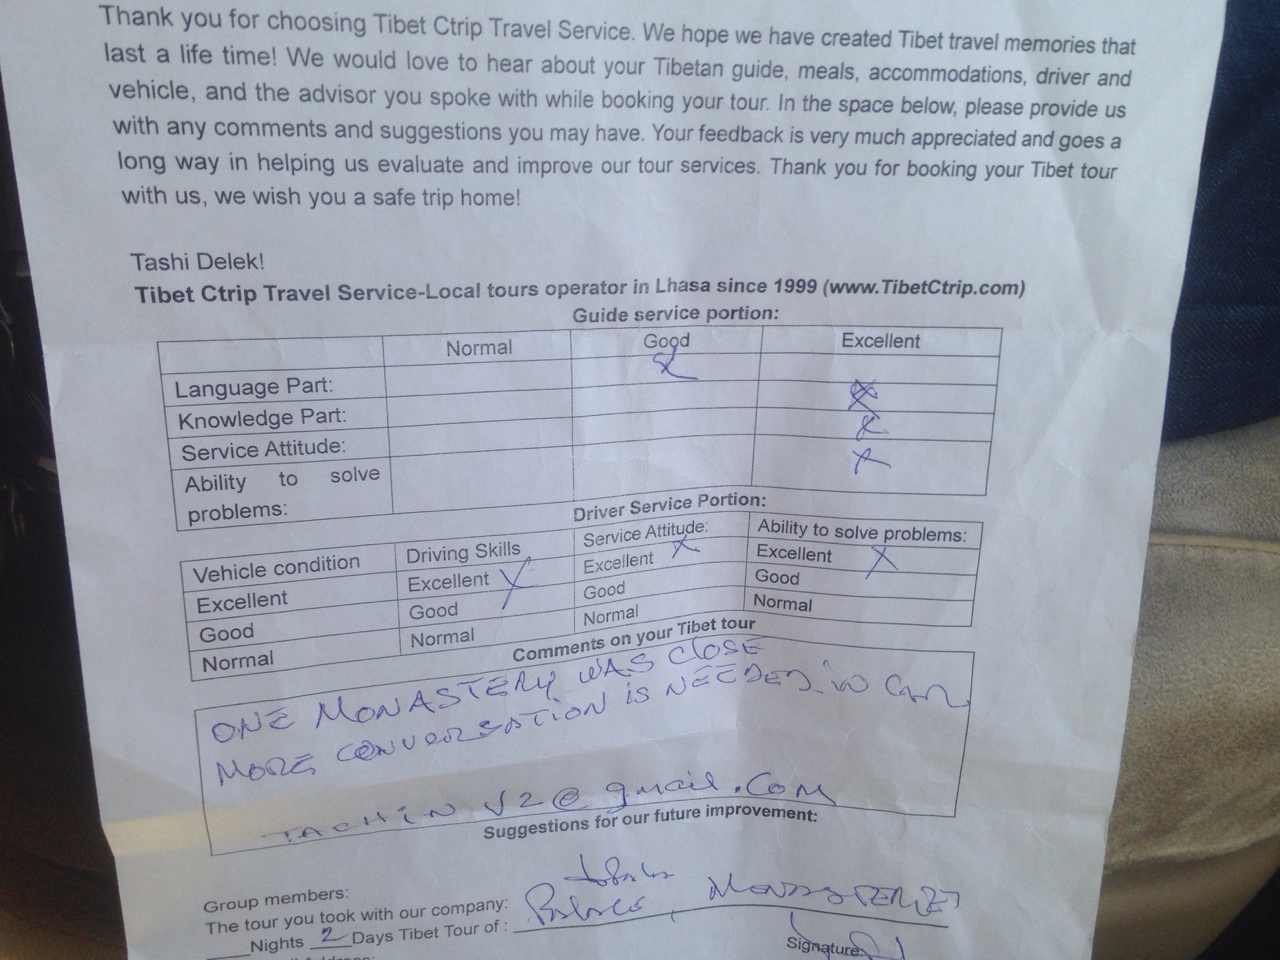 Thank you for choosing Tibet Ctrip Travel Service. We hope we have created Tibet travel memories that
last a life time! We would love to hear about your Tibetan guide, meals, accommodations, driver and
vehicle, and the advisor you spoke with while booking your tour. In the space below, please provide us
with any comments and suggestions you may have. Your feedback is very much appreciated and goes a
long way in helping us evaluate and improve our tour services. Thank you for booking your Tibet tour
with us, we wish you a safe trip home!
Tashi Delek!
Tibet Ctrip Travel Service-Local tours operator in Lhasa since 1999 (www.TibetCtrip.com)
Guide service portion:
Normal Good Excellent
Language Part: X
Knowledge Part: X
Service Attitude: X
Ability to solve problems: X
Driver Service Portion:
Vehicle condition Driving Skills Service Attitude: Ability to solve problems:
Excellent Excellent X Excellent X Excellent X
Good Good Good Good
Normal Normal Normal Normal
Comments on your Tibet tour
ONE MONASTERY WAS CLOSE
MORE CONVERSATION IS NEEDED in CAR
TACHIN V2@gmail.COM
Suggestions for our future improvement:
Group members:
The tour you took with our company:
Nights 2 Days Tibet Tour of :
Signature: